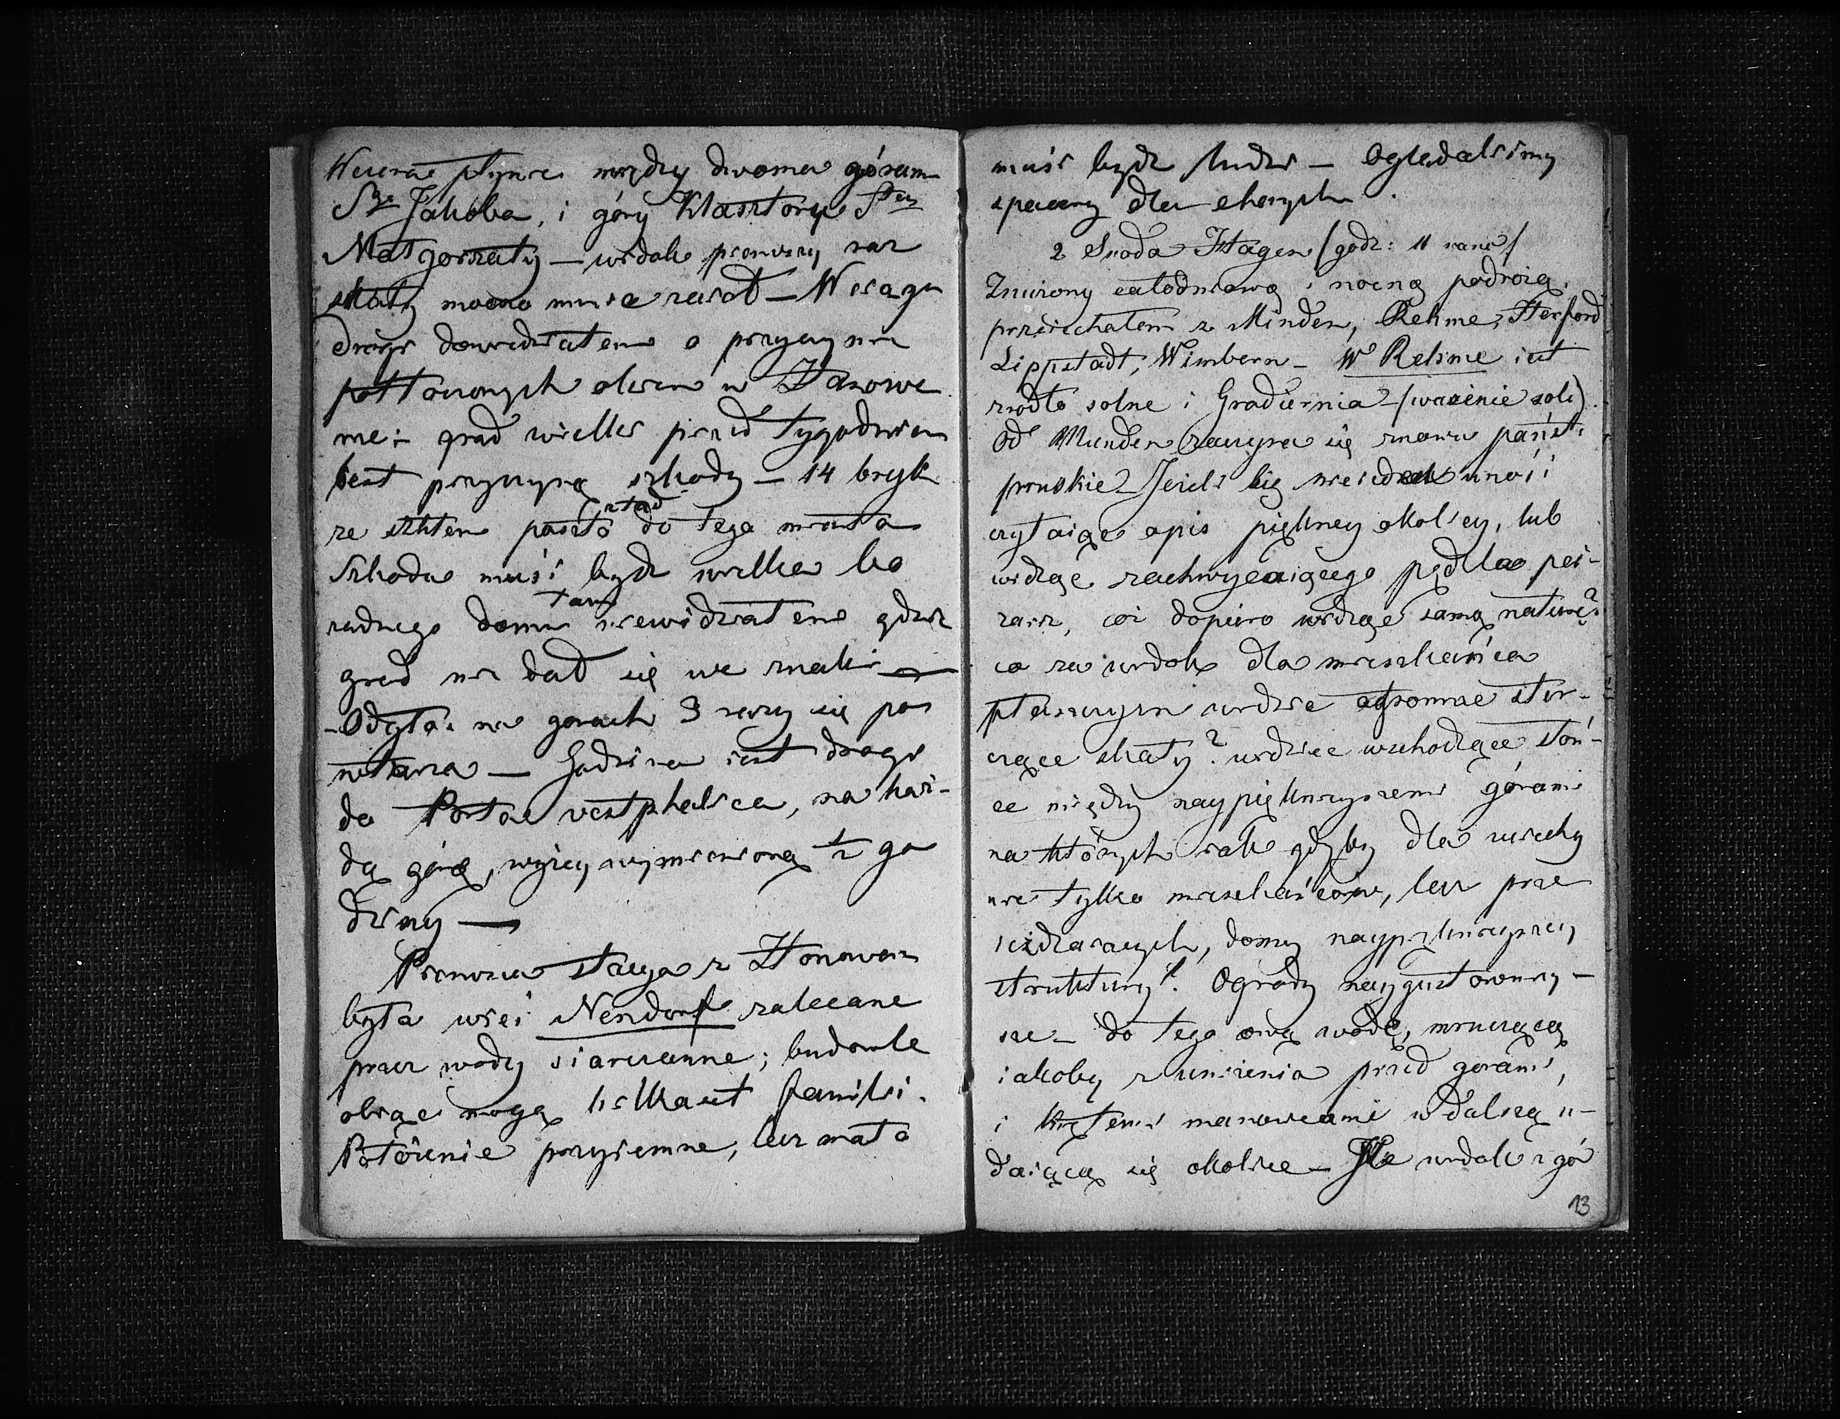 Wezera płynie między dwoma góram
Sgo Jakóba, i góry Klasztory Stey
Małgorzaty — widok pierwszy raz
skały mocno mnie zaiął — W ciągu
drogi dowiedziałem o przyczynie
potłuczonych okien w Hanowe
rze: grad wielki przed tygodniem
iest przyczyną szkody — 14 bryk
ze szkłem poszło ztąd do tego miasta
Szkoda musi bydź wielka bo
żadnego domu tam niewidziałem gdzie
grad nie dał się we znaki —
Odgłos na gorach 3 razy się po
wtarza — Godzina iest drogi
do Porta vestphalica, na każ-
dą górę, wyżey wymienioną ½ go
dziny —
Pierwsza stacya z Honower
była wieś Nendorf zalecane
przez wody siarczanne; budowle
obiąć mogą kilkaset familii.
Położenie przyiemne, lecz mało
musi bydź ludzi — Oglądaliśmy
spacery dla chorych.
2 Sroda Hagen /godz: 11 rano/
Znużony całodniową i nocną podrożą,
przeiechałem z Minden, Rehme, Herford
Lippstadt, Wimbern — W Rehme iest
zrodło solne i Gradiernia — (ważenie soli)
Od Munden zaczyna się znowu państ:
pruskie — Jeżeli się nieiednok unosi
czytaiąc opis piękney okolicy, lub
widząc zachwycaiącego pędzla pei-
zarz, coż dopiero widząc samą naturę?
co za widok dla mieszkańca
płaszczyzn widzie ogromne ster-
czące skały? widziec wschodzące słoń-
ce między naypięknieyszemi górami
na których iak gdyby dla uciechy
nie tylko mieszkańców, lecz prze
ieżdzaiących, domy naypiękniejszey
struktury? Ogrody naygustowniey-
sze — do tego ową wodę, mruczącą
iakoby z uniżenia przed górami,
i krętemi manowcami w dalszą u-
daiącą się okolice — Ile widok z gór
13